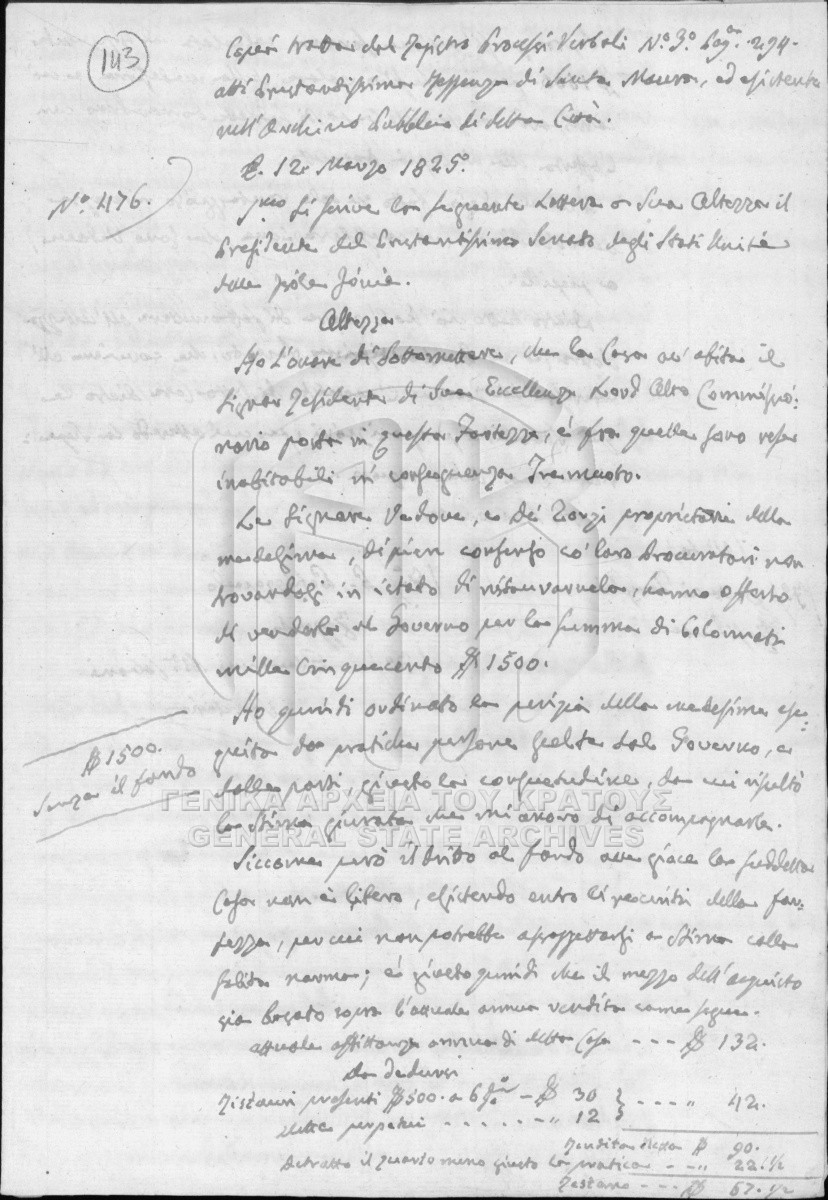 143
Copia tratta dal Registro Processi Verbali Nº 3º Pagª 294.
atti Prestantissima Reggenza di Santa Maura, ed esistente
nell'Archivio Pubblico di detta Città.
12 Marzo 1825.
Nº 476.
Si scrive la seguente Lettera a Sua Altezza il
Presidente del Prestantissimo Senato degli Stati Uniti
delle Isole Jonie.
Altezza
Ho l'onore di sottomettere, che la Casa ov'abita il
Signor Residente di Sua Eccellenza Lord Alto Commissio:
nario posta in questa Fortezza, è fra quelle rese
inabitabili in conseguenza Tremuoto.
Le Signore Vedova, e Dei Zorzi proprietarie della
medesima, di pien consenso co' loro Procuratori non
trovandosi in istato di ristaurarla, hanno offerto
di venderla al Governo per la summa di Colonnati
mille cinquecento $ 1500.
Ho quindi ordinato la perizia della medesima ese:
guita da pratiche persone scelte dal Governo, e
$ 1500.
senza il fondo
dalle parti, giusto la consuetudine, da cui risultò
la stima giurata che mi onoro di accompagnarle.
Siccome però il dritto al fondo ove giace la suddetta
Casa non è libero, esistendo entro li recinti della for:
tezza, per cui non potrebbe assoggettarsi a stima colle
solite norme; è giusto quindi che il mezzo dell'acquisto
sia basato sopra l'attuale annua rendita come segue.
attuale affittanza annua di detta Casa - - - $ 132.
Da dedursi
Ristauri presenti $ 500. a 6 % - $ 30 } - - - " 42.
dette perpetui - - - - - - " 12
Rendita $ 90.
Detratto il quarto meno giusto la pratica - - " 22. 1/2
Restano - - - $ 67. 1/2
ΓΕΝΙΚΑ ΑΡΧΕΙΑ ΤΟΥ ΚΡΑΤΟΥΣ
GENERAL STATE ARCHIVES